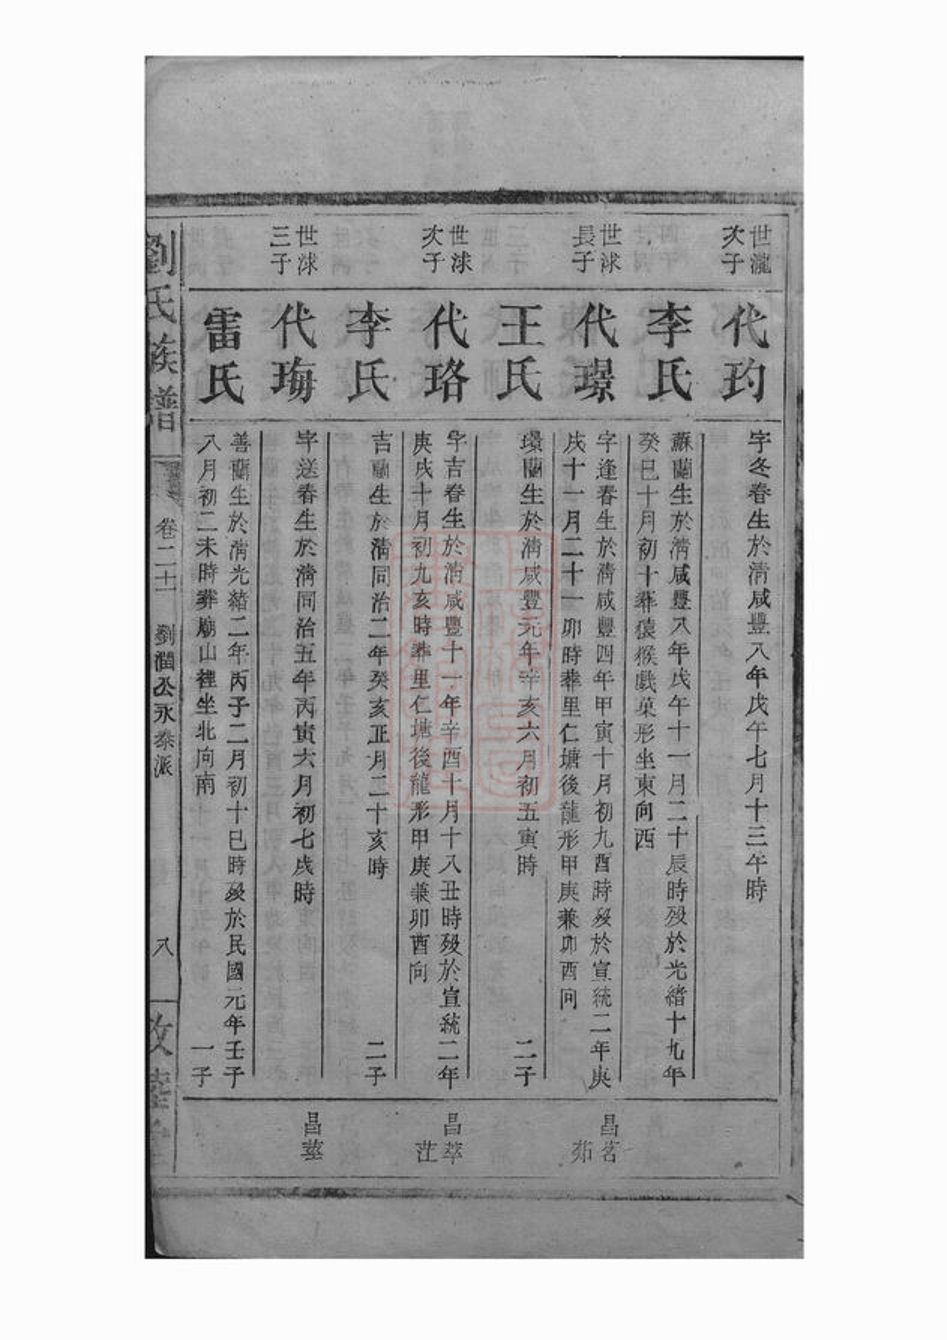 世瀧
次子
代玓
字冬春生於清咸豐八年戊午七月十三午時
李氏
蘇蘭生於清咸豐八年戊午十一月二十辰時歿於光緒十九年
癸巳十月初十葬猿猴戲菓形坐東向西
世球
長子
代璟
字逢春生於清咸豐四年甲寅十月初九酉時歿於宣統二年庚
戌十一月二十一卯時葬里仁塘後龍形甲庚兼卯酉向
昌茗
茆
王氏
環蘭生於清咸豐元年辛亥六月初五寅時
二子
世球
次子
代珞
字吉春生於清咸豐十一年辛酉十月十八丑時歿於宣統二年
庚戌十月初九亥時葬里仁塘後龍形甲庚兼卯酉向
昌萃
茳
李氏
吉蘭生於清同治二年癸亥正月二十亥時
二子
世球
三子
代珻
字送春生於清同治五年丙寅六月初七戌時
昌
雷氏
善蘭生於清光緒二年丙子二月初十巳時歿於民國元年壬子
八月初二未時葬廟山裡坐北向南
一子
劉氏族譜
卷二十
劉潤公永泰派
八